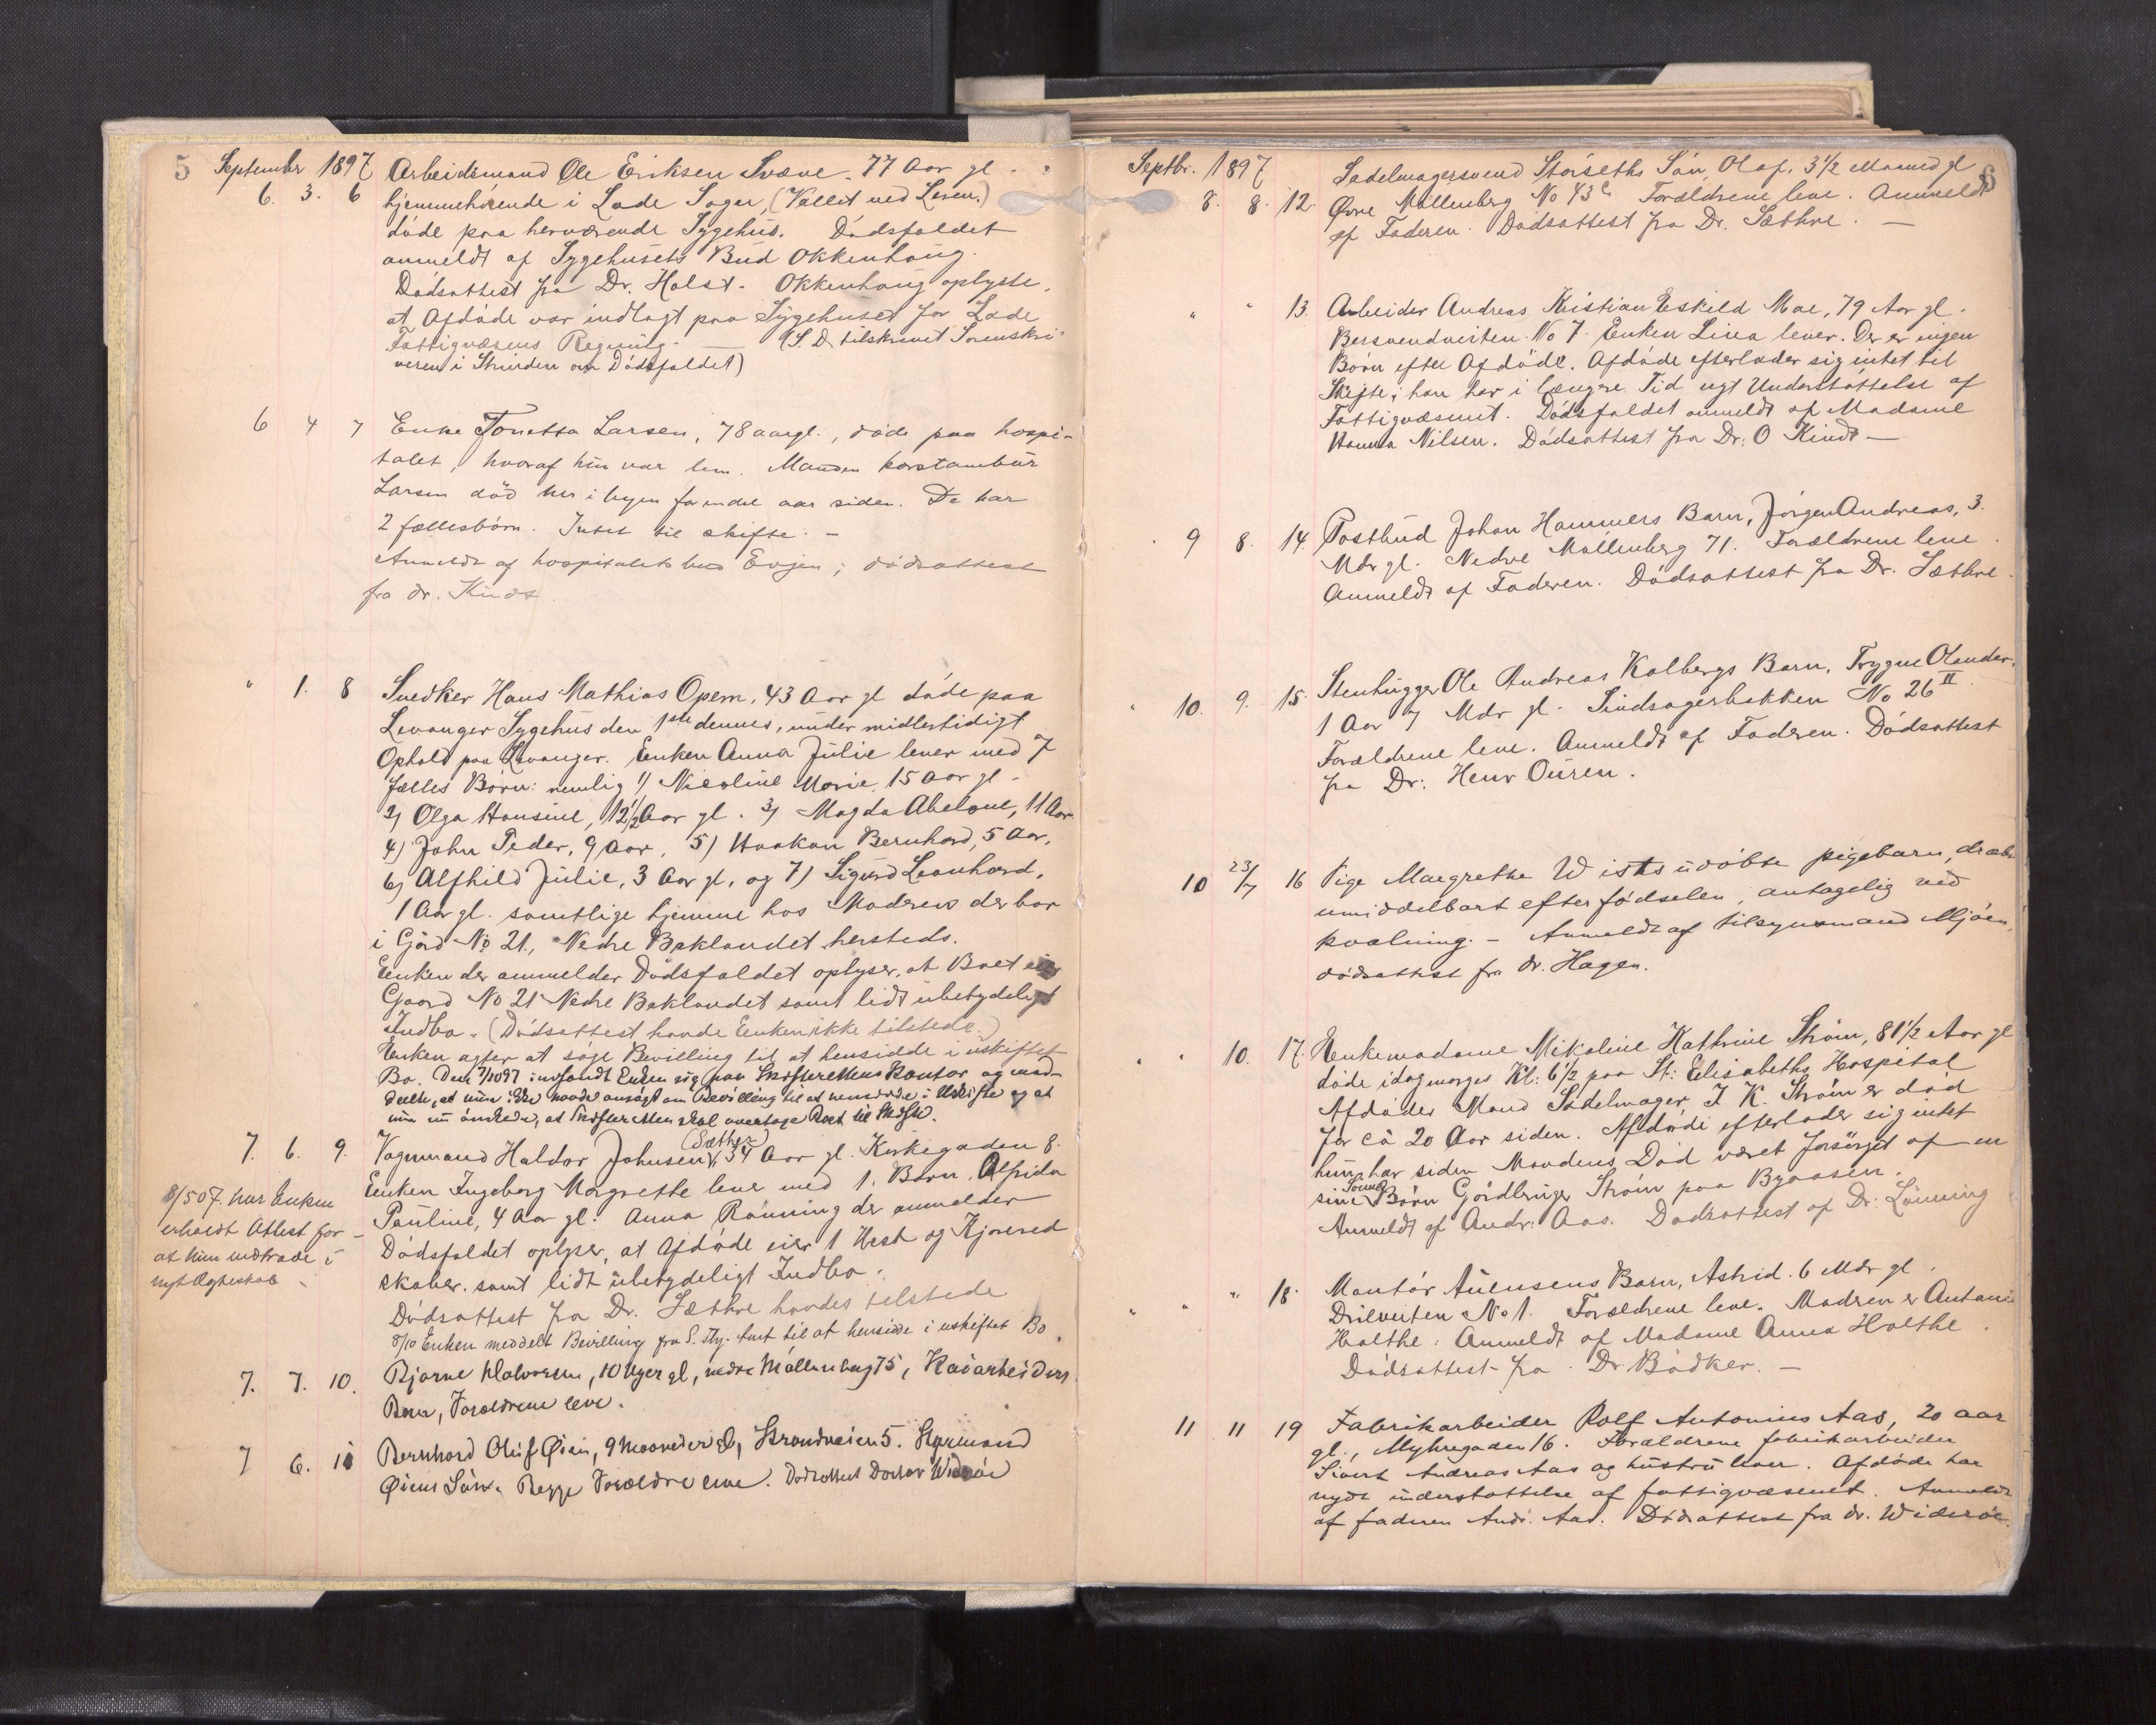 5 September 1897 Arbeidsmand Ole Eriksen Svæve. 77 Aar gl
6. 3. 6 hjemmehörende i Lade Sogn, (Vallet ved Leren.)
döde paa herværende Sygehus. Dödsfaldet
anmeldt af Sygehusets Bud Okkenhaug.
Dödsattest fra Dr. Holst. Okkenhaug oplyste,
at Afdöde var indlagt paa Sygehuset for Lade
Fattigvæsens Regning. — (S. D. tilskrevet Sorenskri-
veren i Strinden om Dödsfaldet)
6 4 7 Enke Tonetta Larsen, 78 aargl., döde paa hospi-
talet, hvoraf hun var lem. Manden
Larsen död her i byen for endel aar siden. De har
2 fællesbörn. Intet til skifte. –
Anmeldt af hospitalets bud Evjen; dödsattest
fra dr. Kindt
" 1. 8 Snedker Hans Mathias Opem, 43 Aar gl döde paa
Levanger Sygehus den 1ste dennes, under midlertidigt
Ophold paa Levanger. Enken Anna Julie lever med 7
fælles Börn: nemlig 1) Nicoline Marie, 15 Aar gl –
2) Olga Hansine, 12 1/2 Aar gl. 3) Magda Abelone, 11 Aar
4) John Peder, 9 Aar, 5) Haakon Bernhard, 5 Aar,
6) Alfhild Julie, 3 Aar gl, og 7) Sigurd Leonhard,
1 Aar gl. samtlige hjemme hos Moderen der bor
i Gård No 21, Nedre Baklandet hersteds.
Enken der anmelder Dödsfaldet oplyser, at Boet eier
Gaard No 21 Nedre Baklandet samt lidt ubetydeligt
Indbo. (Dödsattest havde Enken ikke tilstede.)
Enken agter at söge Bevilling til at hensidde i uskiftet
Bo. Den 7/10 97 indfandt Enken sig paa Skifterettens Kontor og med-
delte, at hun ikke havde ansögt om Bevilling til at hensidde i Uskifte og at
hun nu önskede, at Skifteretten skal overtage Boet til Skifte.
7. 6. 9. Vognmand Haldor Johnsen (Sæther) 34 Aar gl. Kirkegaden 8.
Enken Ingeborg Margrethe lever med 1. Barn, Alfrida
Pauline, 4 Aar gl. Anna Rönning der anmelder
Dödsfaldet oplyser, at Afdöde eier 1 Hest og Kjörered
skaber. samt lidt ubetydeligt Indbo.
Dödsattest fra Dr. Sæthre havdes tilstede
8/10 Enken meddelt Bevilling fra S. til at hensidde i uskiftet Bo.
8/5 07. har Enken
erholdt Attest for
at hun indtræde i
nyt Ægteskab
7. 7. 10. Bjarne Halvorsen, 10 Uger gl, nedre Möllenberg 75, Kaiarbeiders
Barn, Forældrene leve.
7 6. 11 Bernhard Oluf Öien, 9 Maaneder gl, Strandveien 5. Styrmand
Öiens Sön. Begge Forældre leve. Dödsattest Doctor Wideröe
Septbr. 1897 6
8. 8. 12. Sadelmagersvend Störseths Sön, Olaf, 3 1/2 Maaned gl
Övre Möllenberg No 43 Forældrene leve. Anmeldt
af Faderen. Dödsattest fra Dr. Sæthre. —
" " 13. Arbeider Andreas Kristian Eskild Moe, 79 Aar gl.
Bersvendveiten No 7. Enken Lina lever. Der er ingen
Börn efter Afdöde. Afdöde efterlader sig intet til
Skifte; han har i længere Tid nydt Understöttelse af
Fattigvæsenet. Dödsfaldet anmeldt af Madame
Hanna Nilsen. Dödsattest fra Dr: O Kindt —
9 8. 14. Postbud Johan Hammers Barn, Jörgen Andreas, 3.
Mdr gl. Nedre Möllenberg 71. Forældrene leve.
Anmeldt af Faderen. Dödsattest fra Dr. Sæthre.
" 10. 9. 15. Stenhugger Ole Andreas Kalbergs Barn, Trygve Olander,
1 Aar 7 Mdr gl. Tindsagerbakken No 26 II
Forældrene leve. Anmeldt af Faderen. Dödsattest
fra Dr: Henr Ouren.
10 23/7 16 Pige Margrethe Wists udöbte pigebarn, dræbt
umiddelbart efter födselen, antagelig ved
kvælning. – Anmeldt af tilsynsmand Mjöen,
dödsattest fra dr. Hagen.
" " 10. 17. Enkemadame Mikoline Kathrine Ström, 81 1/2 Aar gl
döde idagmorges Kl: 6 1/2 paa St: Elisabeths Hospital
Afdödes Mand Sadelmager J. K. Ström er död
for cà 20 Aar siden. Afdöde efterlader sig intet
hun har siden Mandens Död været forsörget af en
sine Sönne Börn Gårdbruger Ström paa Byaasen.
Anmeldt af Andr: Aas. Dödsattest af Dr. Lönning
" " " 18. Montör Auensens Barn, Astrid. 6 Mdr gl.
Drilveiten No 1. Forældrene leve. Modren er Antonie
Holthe. Anmeldt af Madame Anna Holthe.
Dödsattest fra Dr. Bödker. —
11 11 19 Fabrikarbeider Rolf Antonius Aas, 20 aar
gl., Myhregaden 16. Forældrene fabrikarbeider
Sivert Andreas Aas og hustru lever. Afdöde har
nydt understöttelse af fattigvæsenet. Anmeldt
af faderen Andr. Aas. Dödsattest fra dr. Wideröe.